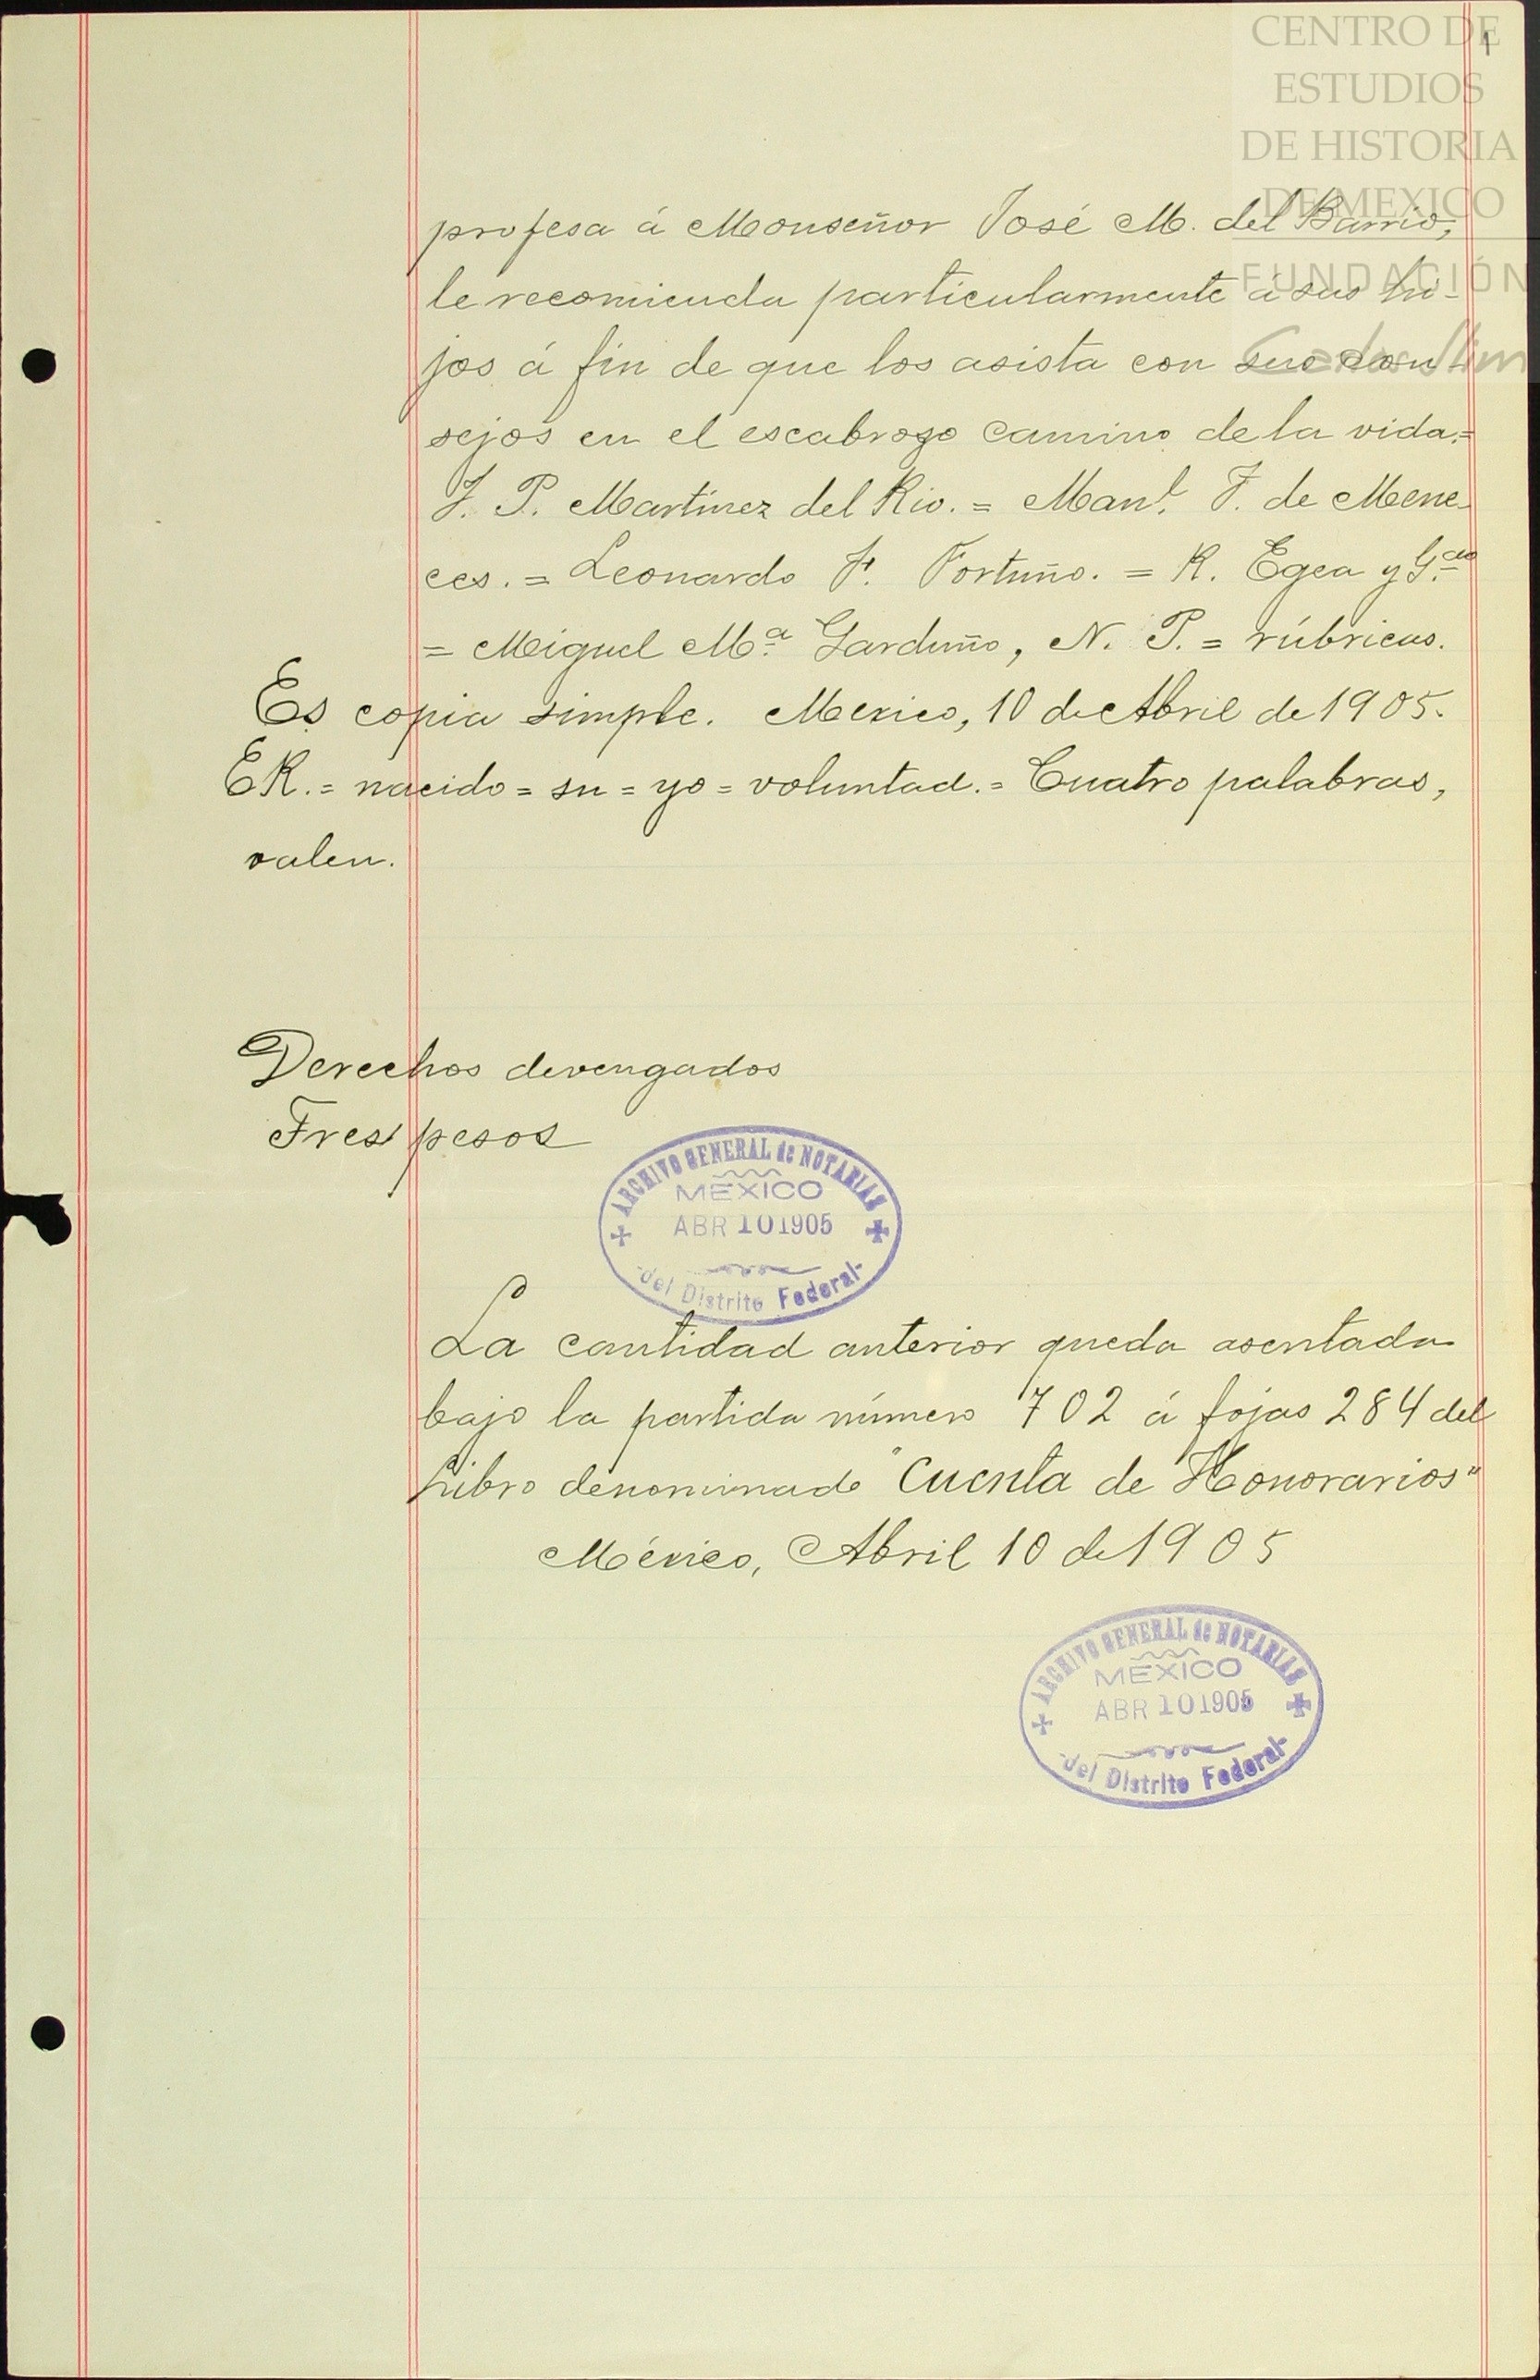 CENTRO DE
ESTUDIOS
DE HISTORIA
DE MEXICO
FUNDACIÓN
Carlos Slim
1
profesa á Monseñor José M. del Barrio,
le recomienda particularmente á sus hi-
jos á fin de que los asista con sus con-
sejos en el escabrozo camino de la vida.=
J. P. Martínez del Rio. = Manl. F. de Mene-
ces. = Leonardo F. Fortuño. = R. Egea y G.
= Miguel Mª Garduño, N. P. = rúbricas.
Es copia simple. Mexico, 10 de Abril de 1905.
ER. = nacido = su = yo = voluntad. = Cuatro palabras,
valen.
Derechos devengados
Tres pesos
ARCHIVO GENERAL de NOTARIAS
MÉXICO
ABR 10 1905
-del Distrito Federal-
La cantidad anterior queda asentada
bajo la partida número 702 á fojas 284 del
Libro denominado "Cuenta de Honorarios"
México, Abril 10 de 1905
ARCHIVO GENERAL de NOTARIAS
MÉXICO
ABR 10 1905
-del Distrito Federal-